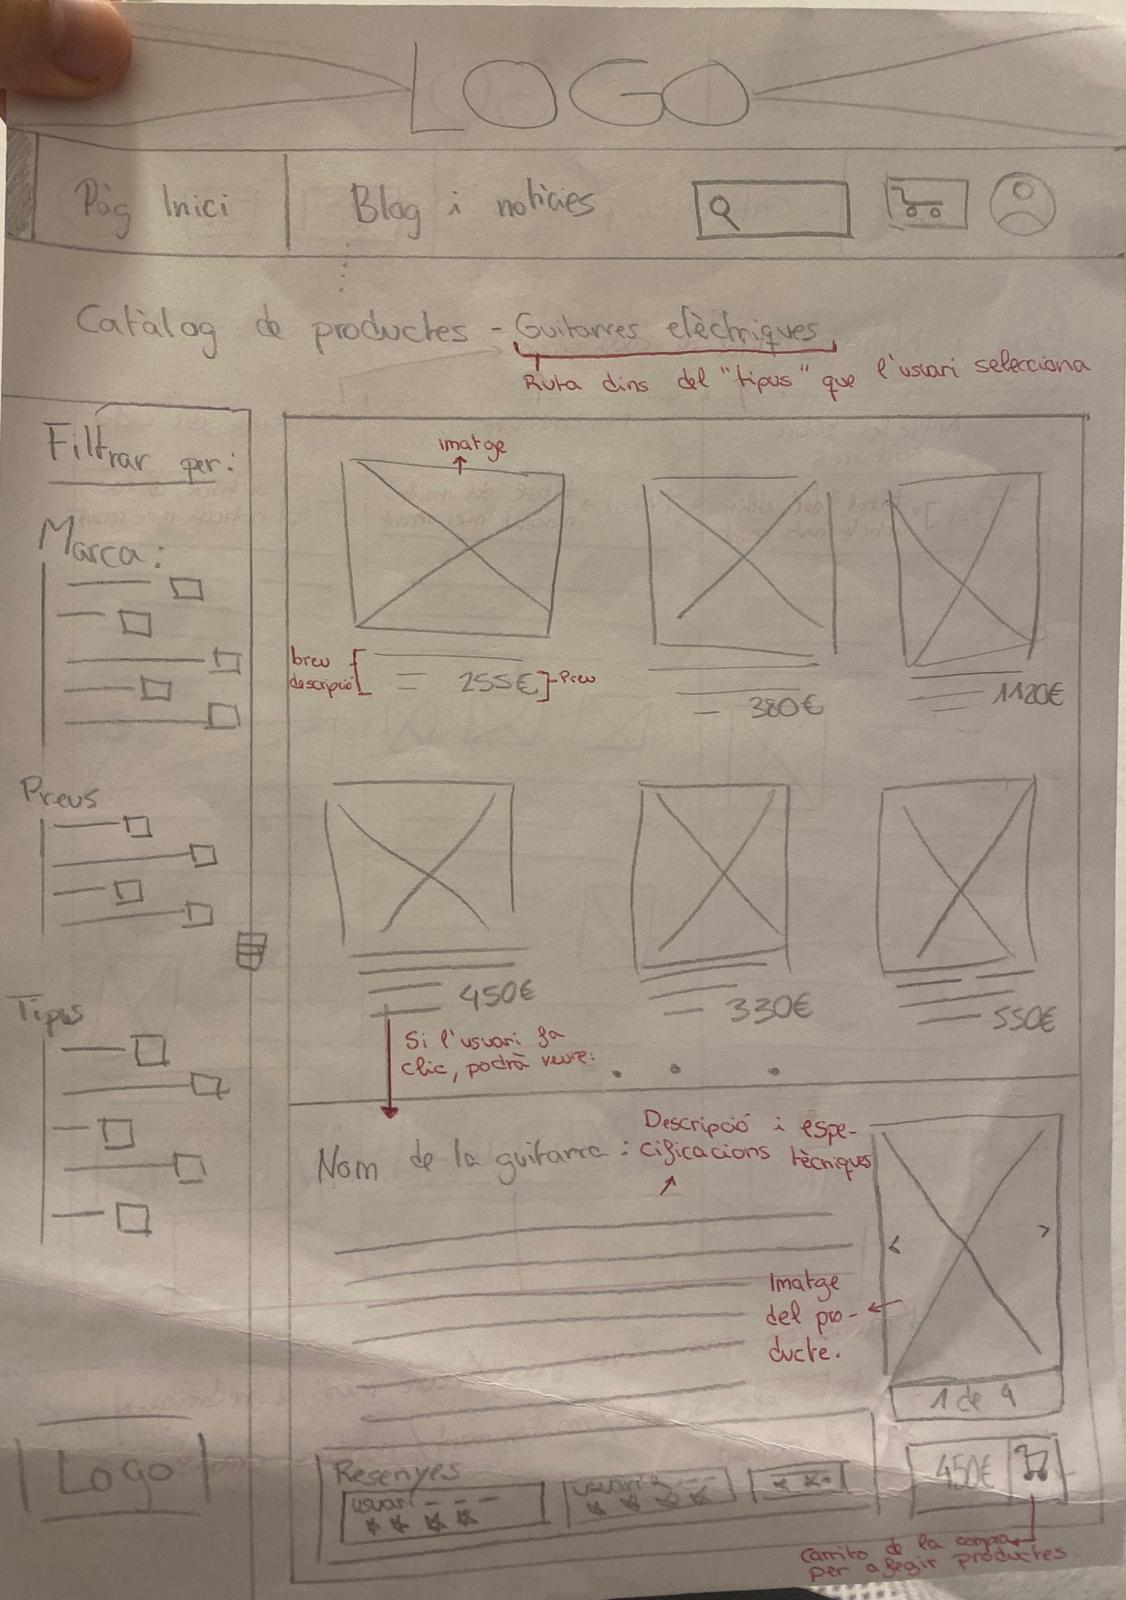 LOGO
Pàg Inici
Blog i notícies
Catàlog de productes - Guitarres elèctriques
Ruta dins del "tipus" que l'usuari selecciona
Filtrar per:
Marca:
Preus
Tipus
Logo
imatge
breu
descripció
255€
Preu
380€
1120€
450€
330€
550€
Si l'usuari fa
clic, podrà veure:
Nom de la guitarra:
Descripció i espe-
cificacions tècniques
Imatge
del pro-
ducte.
< >
1 de 4
Resenyes
usuari
usuari
450€
Carrito de la compra
per afegir productes.